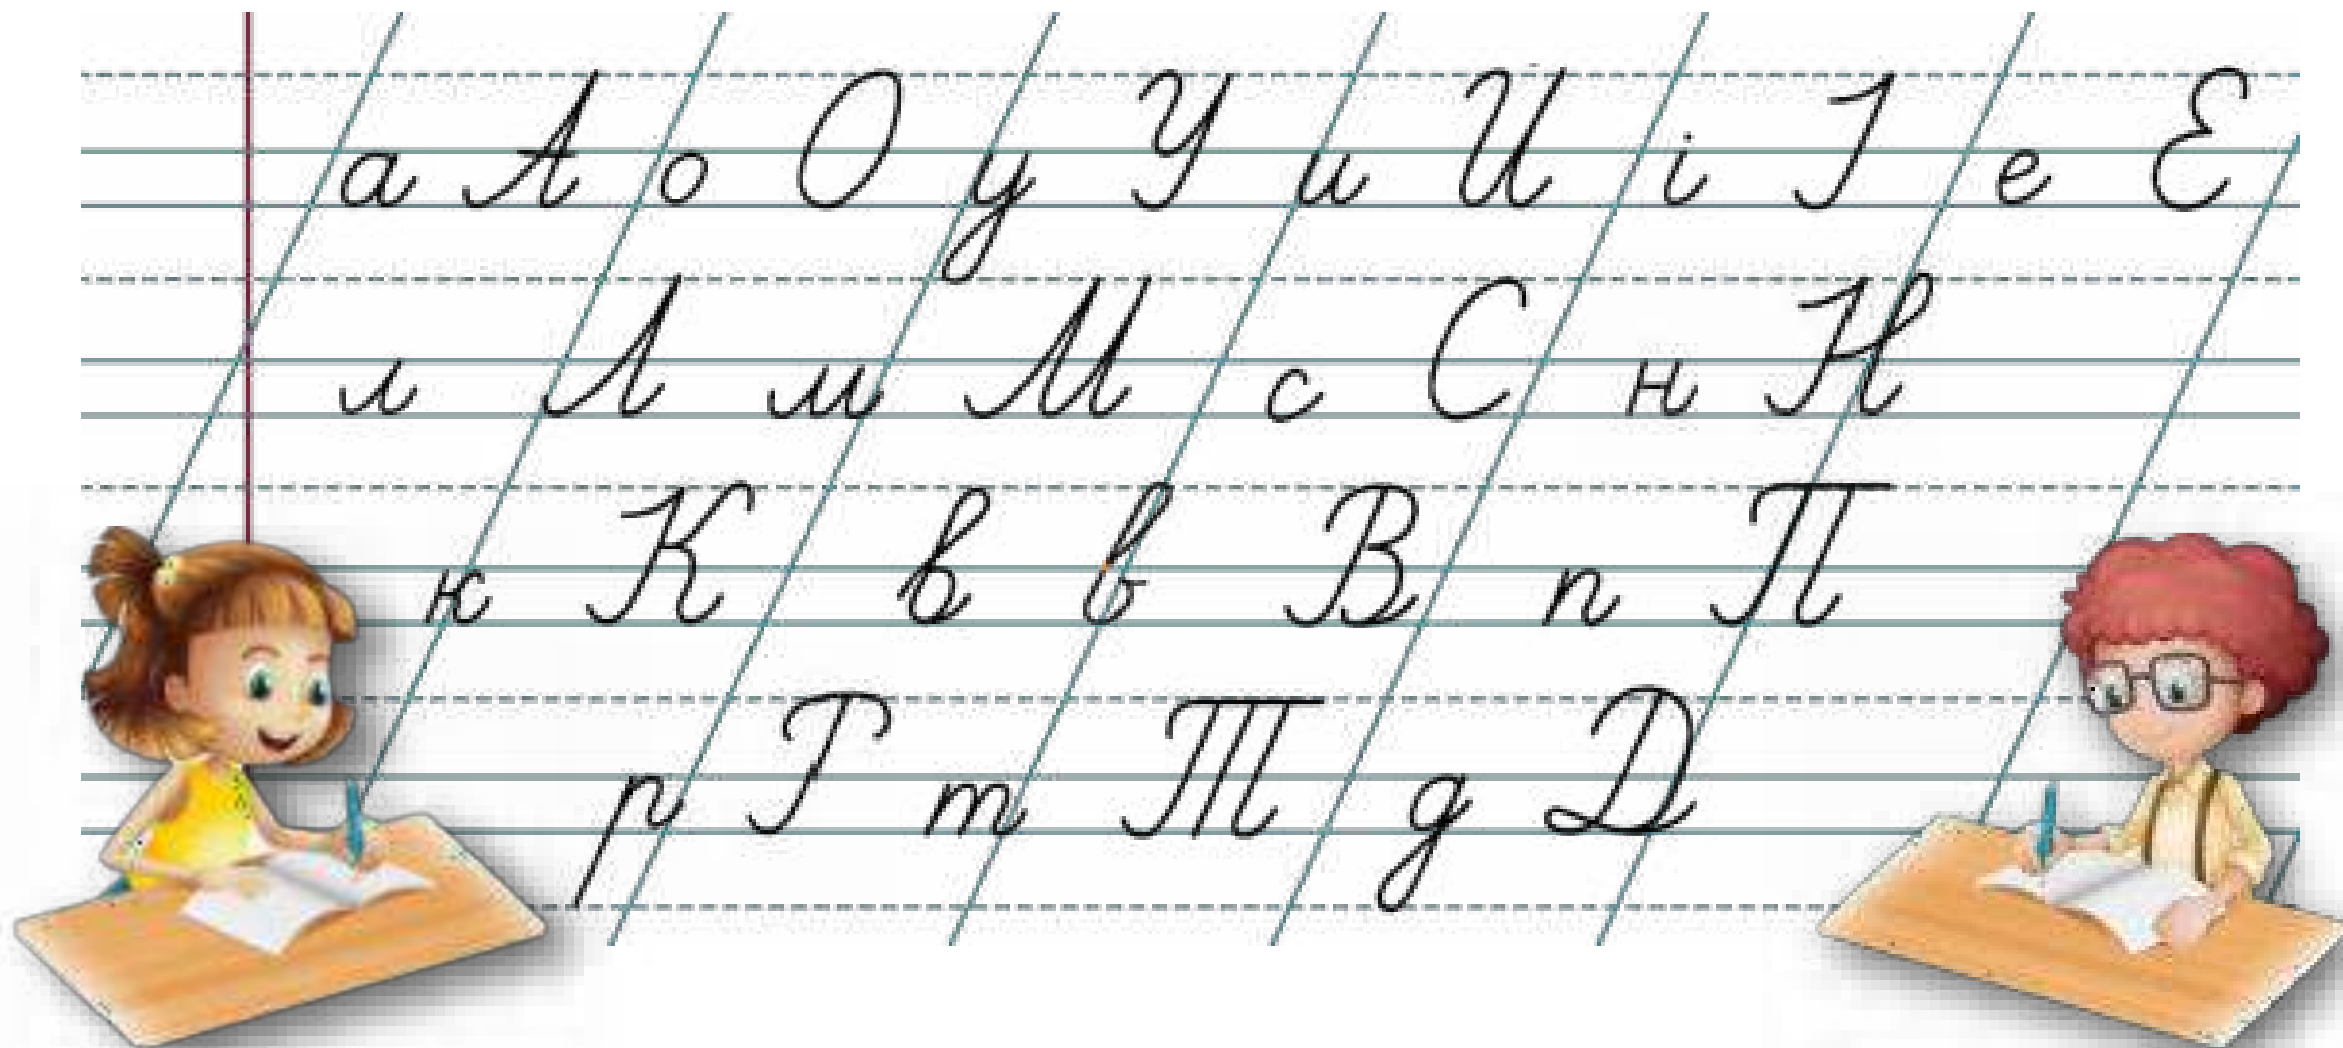 а А о О у У и И і І е Е
л Л м М с С н Н
к К в в В п П
р Г т Т д Д